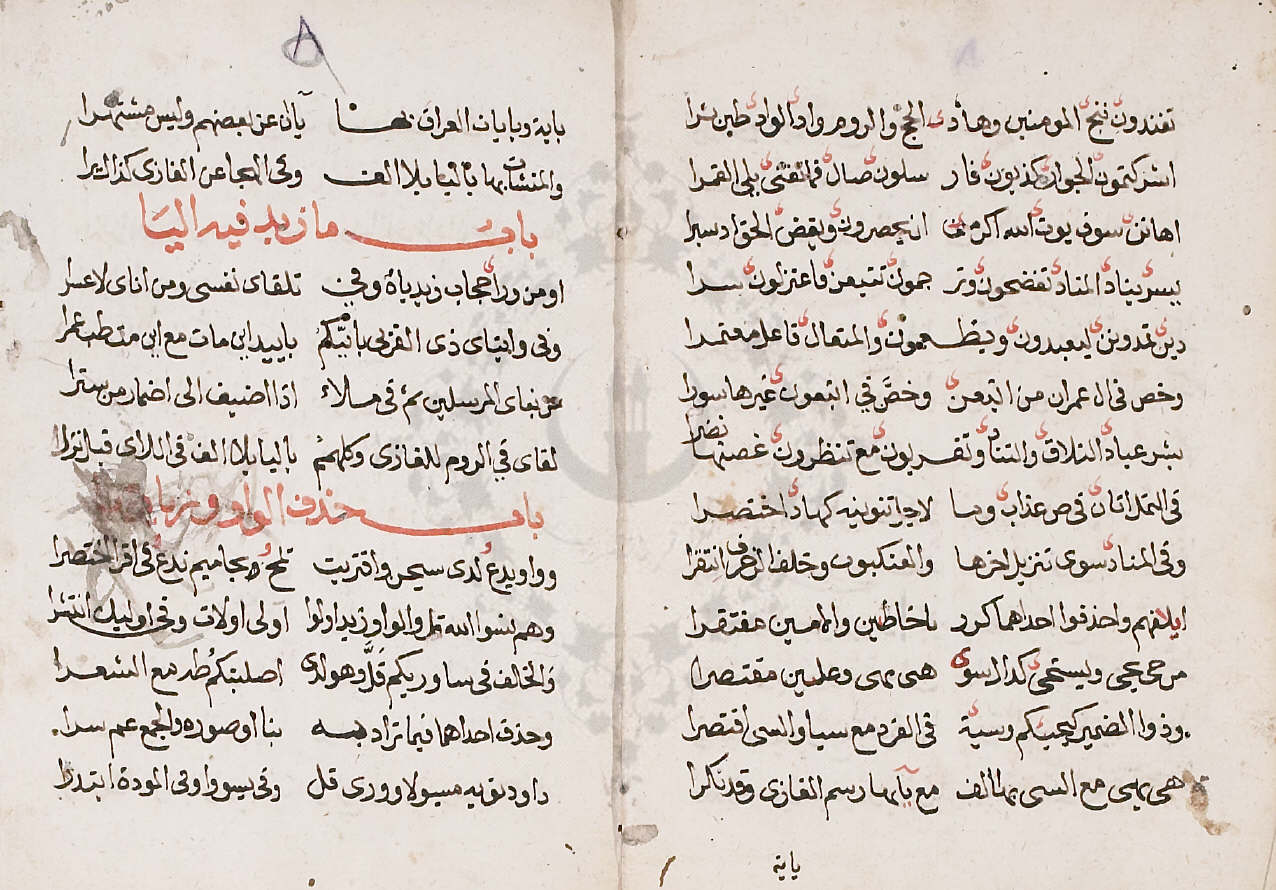 تفندون ننج المومنين وهاد الحج والروم واد الواد طبن ثرا
اشركتمون الجوار كذبون فار سلون صال فما تغنى يلى القمرا
اهانن سوف يوت الله اكرمن ان يحضرون ويقض الحق اذ سبرا
يسر يناد المناد تفضحون وتر جمون تتبعن فاعتزلون سرا
دين تمدونن ليعبدون ويطعمون والمتعال فاعل معتمرا
وخص فى ال عمران من اتبعن وخص في اتبعون غيرها سورا
بشر عباد التلاق والتناد وتقربون مع تنظرون غصنها نضرا
فى النمل اتان فى ص عذاب وما لاجل تنوينه كهاد اختصرا
وفى المناد سوى تنزيل اخرها والعنكبوت وخلف الزخرف انتقرا
ايلافهم واحذفوا احداهما كورءيا خاطئين والامين مقتفرا
من حى يحيى ويستحى كذاك سوى هيى يهيى وعليين مقتصرا
وذوا الضمير كيحييكم وسية فى الفرد مع سيا والسى اقتصرا
هيى يهيى مع السى بها الف مع يائها رسم الغازى وقد نكرا
باية
٨
باية وبايات العراق بها يآان عن بعضهم وليس مشتهرا
والمنشات بها باليا بلا الف وفى الهجا عن الغازى كذا ليرا
باب ما زيد فيه اليا
او من ورا حجاب زيد ياه وفي تلقاى نفسى ومن اناى لا عسرا
وفى وايتاى ذى القربى باييكم باييد اين مات مع اين مت طب عمرا
من نباى المرسلين ثم فى ملاء اذا اضيف الى اضمار من سترا
لقاى في الروم للغازى وكلهم باليا بلا الف فى اللاى قبل ترا
باب حذف الواو وزيادتها
وواو يدع لدى سبحن واقتربت تمح بحاميم ندع فى اقرا اختصرا
وهم نسوا الله قل والواو زيد اولوا اولى اولات وفى اوليك انتشرا
والخلف فى ساوريكم قل وهو لدى اصلبنكم طه مع الشعرا
وحذف احداهما فيما تزاد به بنا او صوره والجمع عم سرا
داود توويه مسولا وورى قل وفى يسووا وفى المودة ابتدرا